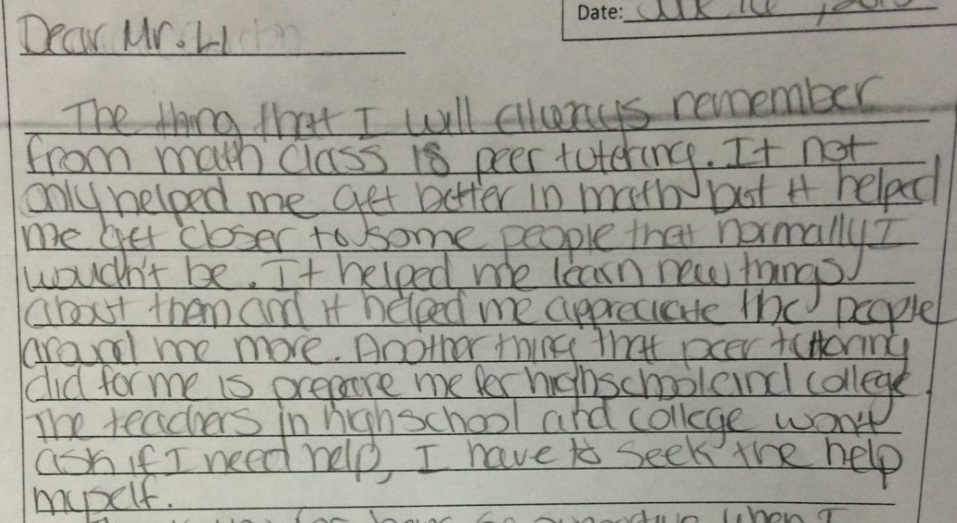 Date:
Dear Mr. Li
The thing that I will always remember
from math class is peer tutering. It not
only helped me get better in math but it helped
me get closer to some people that normally I
woudn't be. It helped me learn new things
about them and it helped me appreciate the people
around me more. Another thing that peer tuttoring
did for me is prepare me for highschool and college.
The teachers in highschool and college won't
ask if I need help, I have to seek the help
myself.